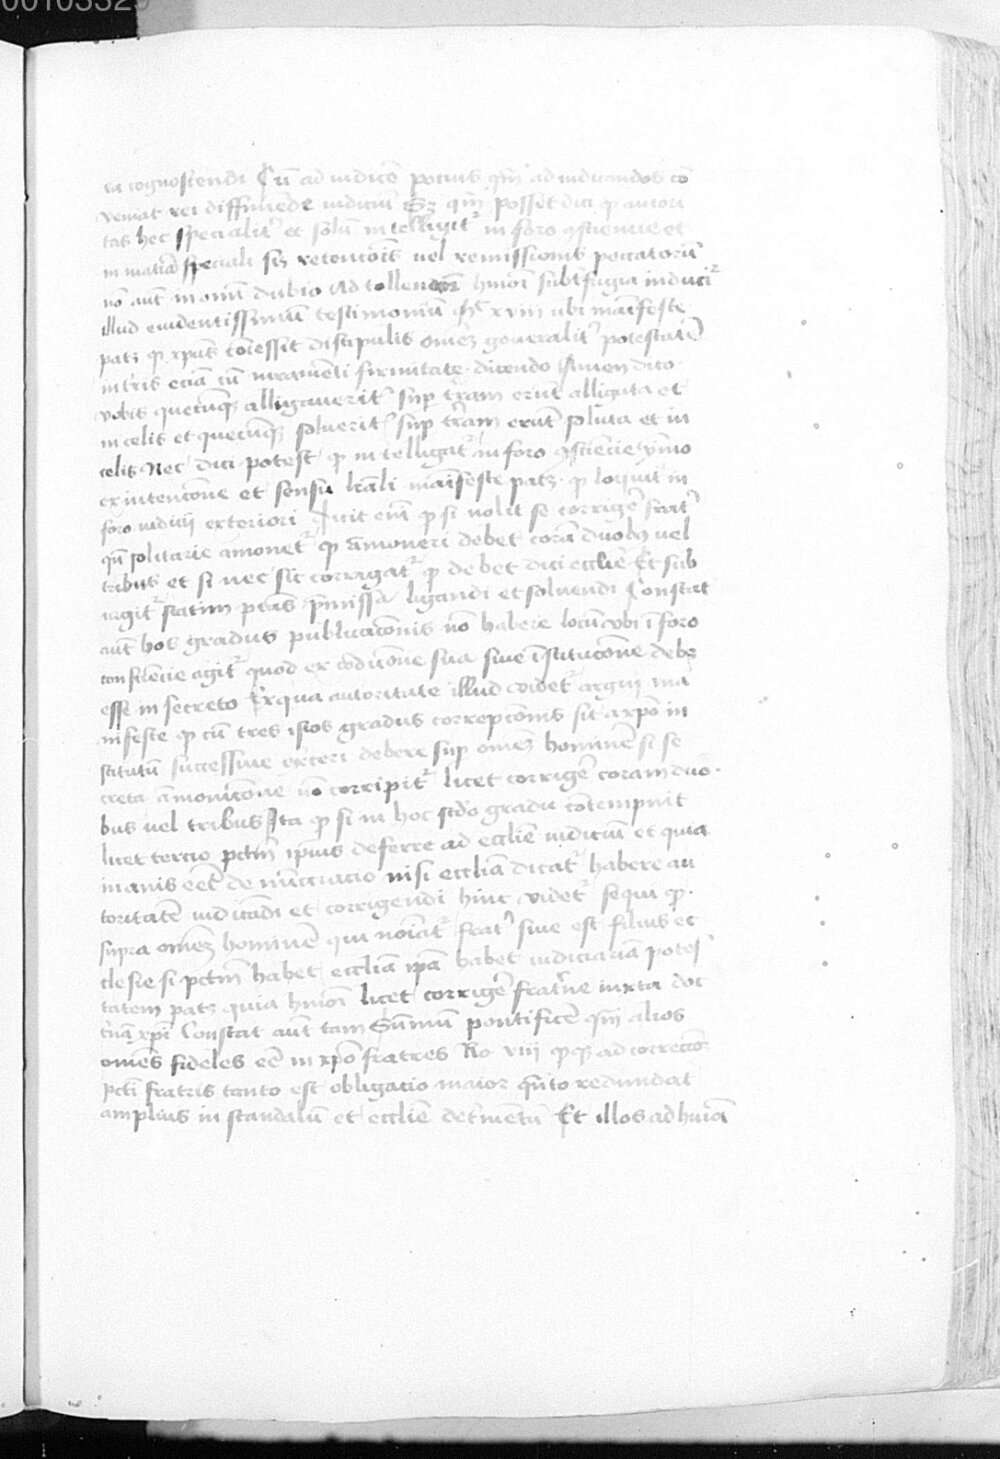 00103329
ca cognoscendi Cū ad iudicē pocius qm̄ ad iudicandos cō
veniat rei diffiniende iudiciū Sꝫ qm̄ posset dici ꝙ autori
tas hec specialitʳ et solū intelligitʳ in foro ꝯsciencie et
in mat̄ia speciali sꝫ retencōis vel remissionis peccatorū
nō aūt in omni dubio Ad tollendum hmōi subt̄fugia inducitʳ
illud evidentissimum testimoniū xviii ubi maīfeste
patꝫ ꝙ xp̄us cōcessit discipulis omēꝫ generalitʳ potestatē
in t̄ris eciā cū iuramenti firmitate dicendo Amen dico
vobis quecūqꝫ alligaveritʳ sup̄ t̄ram erūt alligata et
in celis et quecūqꝫ solveritʳ sup̄ t̄ram erūt soluta et in
celis Nec dici potest ꝙ intelligatʳ in foro ꝯsciencie ymo
ex intencōne et sensu lr̄ali maīfeste patꝫ ꝙ loquit̄ in
foro iudicii exteriori dicit enī ꝙ si nolit se corrigēʳ frat̄
qn̄ solitarie amonetʳ ꝙ āmoneri debet corā duobꝫ vel
tribus et si nec sic corrigatʳ ꝙ debet dici eccliē Et sub
iūgitʳ statim ptās p̄missa ligandi et solvendi Constat
aūt hos gradus publicacōnis nō habere locū ubi ī foro
consciēcie agitʳ quod ex ꝯdicōne sua sive īstitucōne debꝫ
esse in secreto Ex qua autoritate illud videtʳ argui ma
nifeste ꝙ cū tres istos gradus correpcōnis sit a xp̄o in
stitutū successive exceri debere sup̄ omēꝫ hominē si se
creta āmonicōne nō corripitʳ licet corrigēʳ coram duo
bus vel tribus Ita ꝙ si in hoc scdo gradu cōtempnit
licet tercio pctm̄ ip̄ius deferre ad eccliē iudiciū et quia
inanis eēt denūcciacio nisi eccliā dicatʳ habere au
toritatē iudicādi et corrigendi hinc videtʳ sequi ꝙ
supra omēꝫ hominē qui noīatʳ frat̄ sive est filius ec
clesie si pctm̄ habet eccliā ip̄a habet iudiciariā potes
tatem patꝫ quia hmōi licet corrigēʳ frat̄ne iuxta doc
t̄nā xp̄i Constat aūt tam Sūmū pontificē qm̄ alios
omēs fideles eē in xp̄o fratres Ro viii ad correccōꝫ
pcti fratris tanto est obligacio maior qn̄to redundat
amplius in scandalū et eccliē det̄mentū Et illos ad huiōi